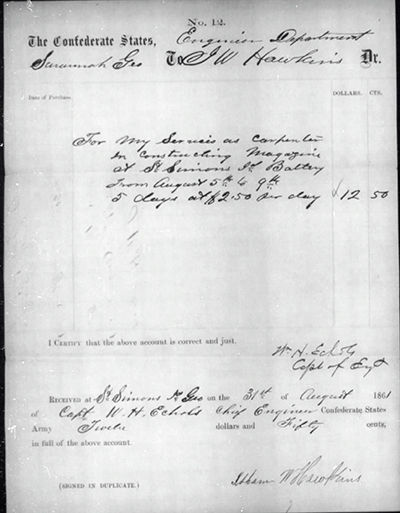 No. 12.
The Confederate States, Engineer Department
Savannah Geo To J W Hawkins Dr.
Date of Purchase. DOLLARS. CTS.
For My Servicis as Carpenter
In Constructing Magazine
At St Simons Id Battery
From August 5th to 9th
5 days at $2.50 per day $12 50
I CERTIFY that the above account is correct and just.
W. H. Echols
Capt of Eng
RECEIVED at St Simons Is Geo on the 31st of August 1861
of Capt W. H. Echols Chief Engineer Confederate States
Army Twelve dollars and Fifty cents,
in full of the above account.
W Hawkins
(SIGNED IN DUPLICATE.)